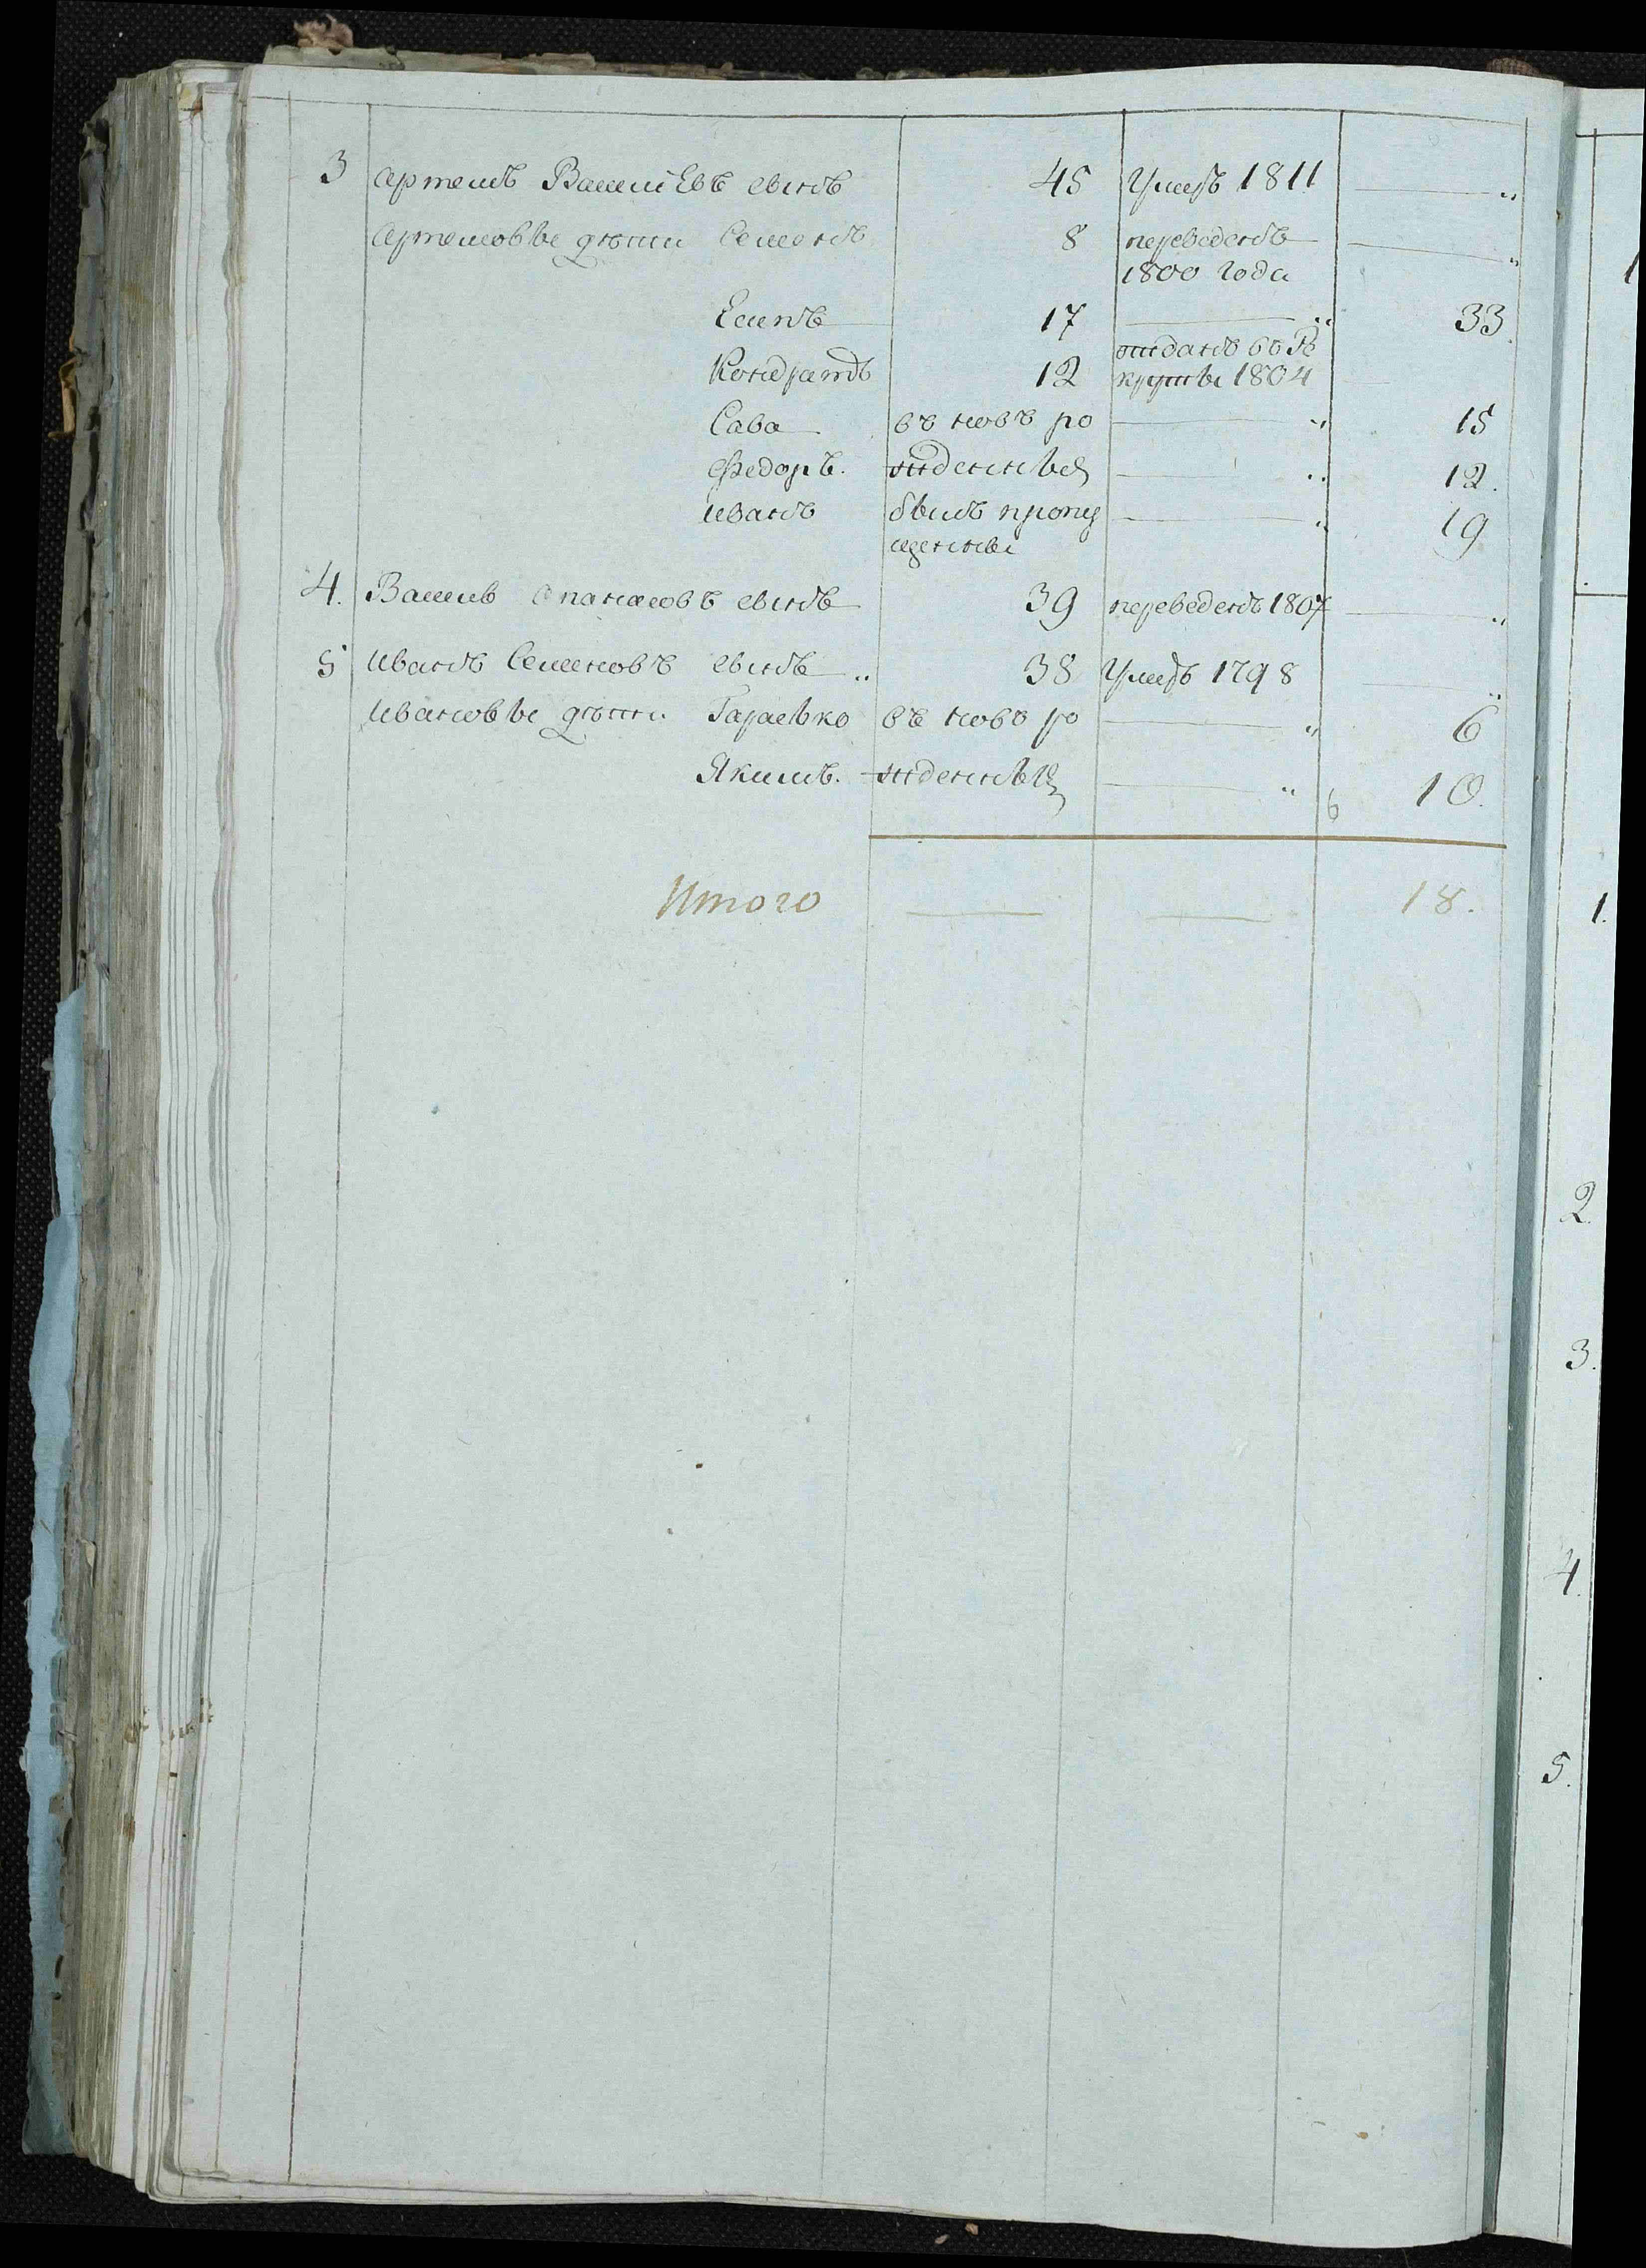 3 Артемъ Васил Евъ сынъ 45 Умеръ 1811 "
Артемовы дѣти Семенъ 8 переведенъ "
1800 года
Есипъ 17 " 33
отданъ въ Ре
Кондратъ 12 круты 1804
Сава въ новъ ро " 15
Федоръ. жденныя " 12.
Иванъ былъ пропу " 19
щенны
4. Василь Опанасовъ сынъ 39 переведенъ 1807 "
5 Иванъ Семеновъ сынъ " 38 Умеръ 1798 "
Ивановы дѣти Гарасько въ новъ ро " 6
Якимъ. жденны " 6 10.
Итого 18.
1.
2.
3.
4.
5.